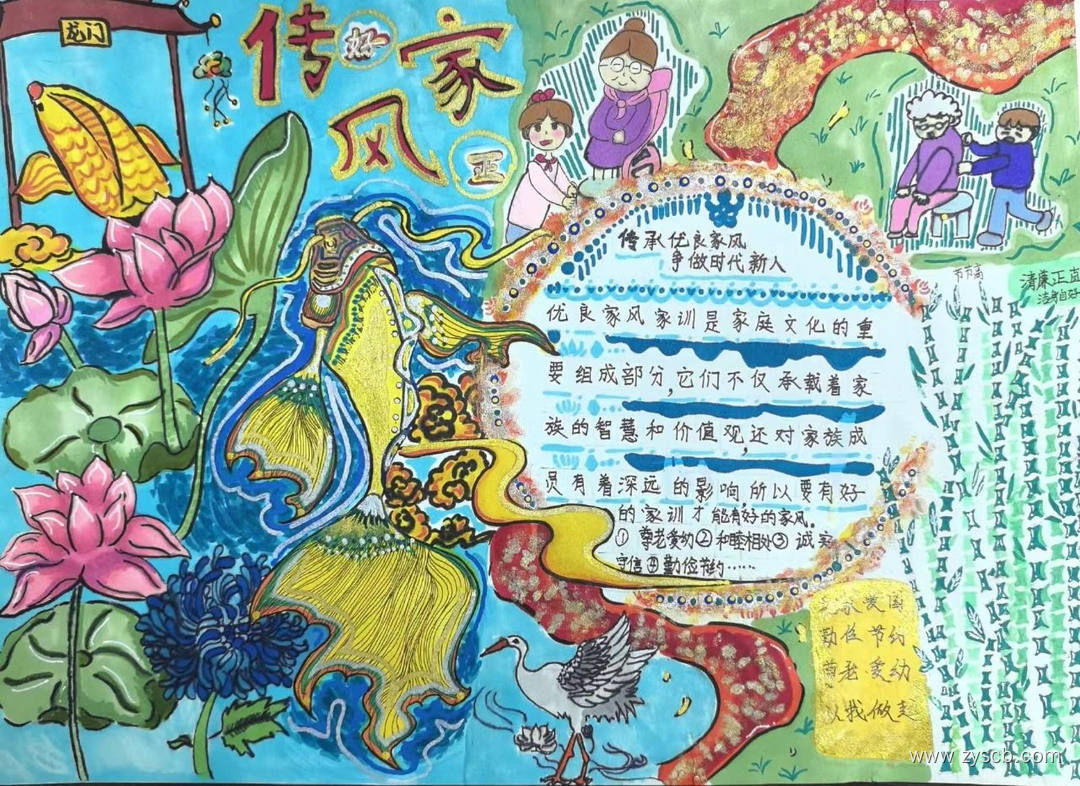 龙门
传好家
风正
传承优良家风
争做时代新人
优良家风家训是家庭文化的重
要组成部分,它们不仅承载着家
族的智慧和价值观,还对家族成
员有着深远的影响所以要有好
的家训才能有好的家风。
① 尊老爱幼②和睦相处③诚实
守信④勤俭节约……
节节高
清廉正直
洁身自好
爱国
勤俭节约
尊老爱幼
从我做起
www.zyscb.com